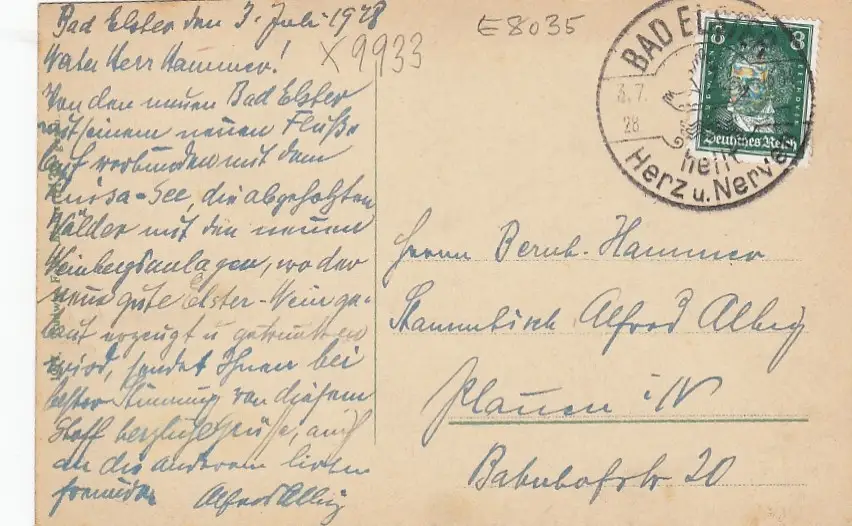 Bad Elster den 3. Juli 1928
Werter Herr Hammer!
Von den neuen Bad Elster
mit seinem neuen Fluß-
lauf verbunden mit dem
-See, die abgeholzten
Wälder mit den neuen
Weinbergsanlagen, wo der
neue gute Elster-Wein ge-
baut erzeugt u getrunken
wird, sendet Ihnen bei
bester Stimmung von diesem
Stoff herzliche Grüße, auch
an die anderen lieben
Freunde. Alfred Albig
X 9933
E8035
BAD ELSTER
3.7.
28
heilt
Herz u. Nerven
8 8
Deutsches Reich
Herrn Bernh. Hammer
Stammtisch Alfred Albig
Plauen i/V
Bahnhofstr 20